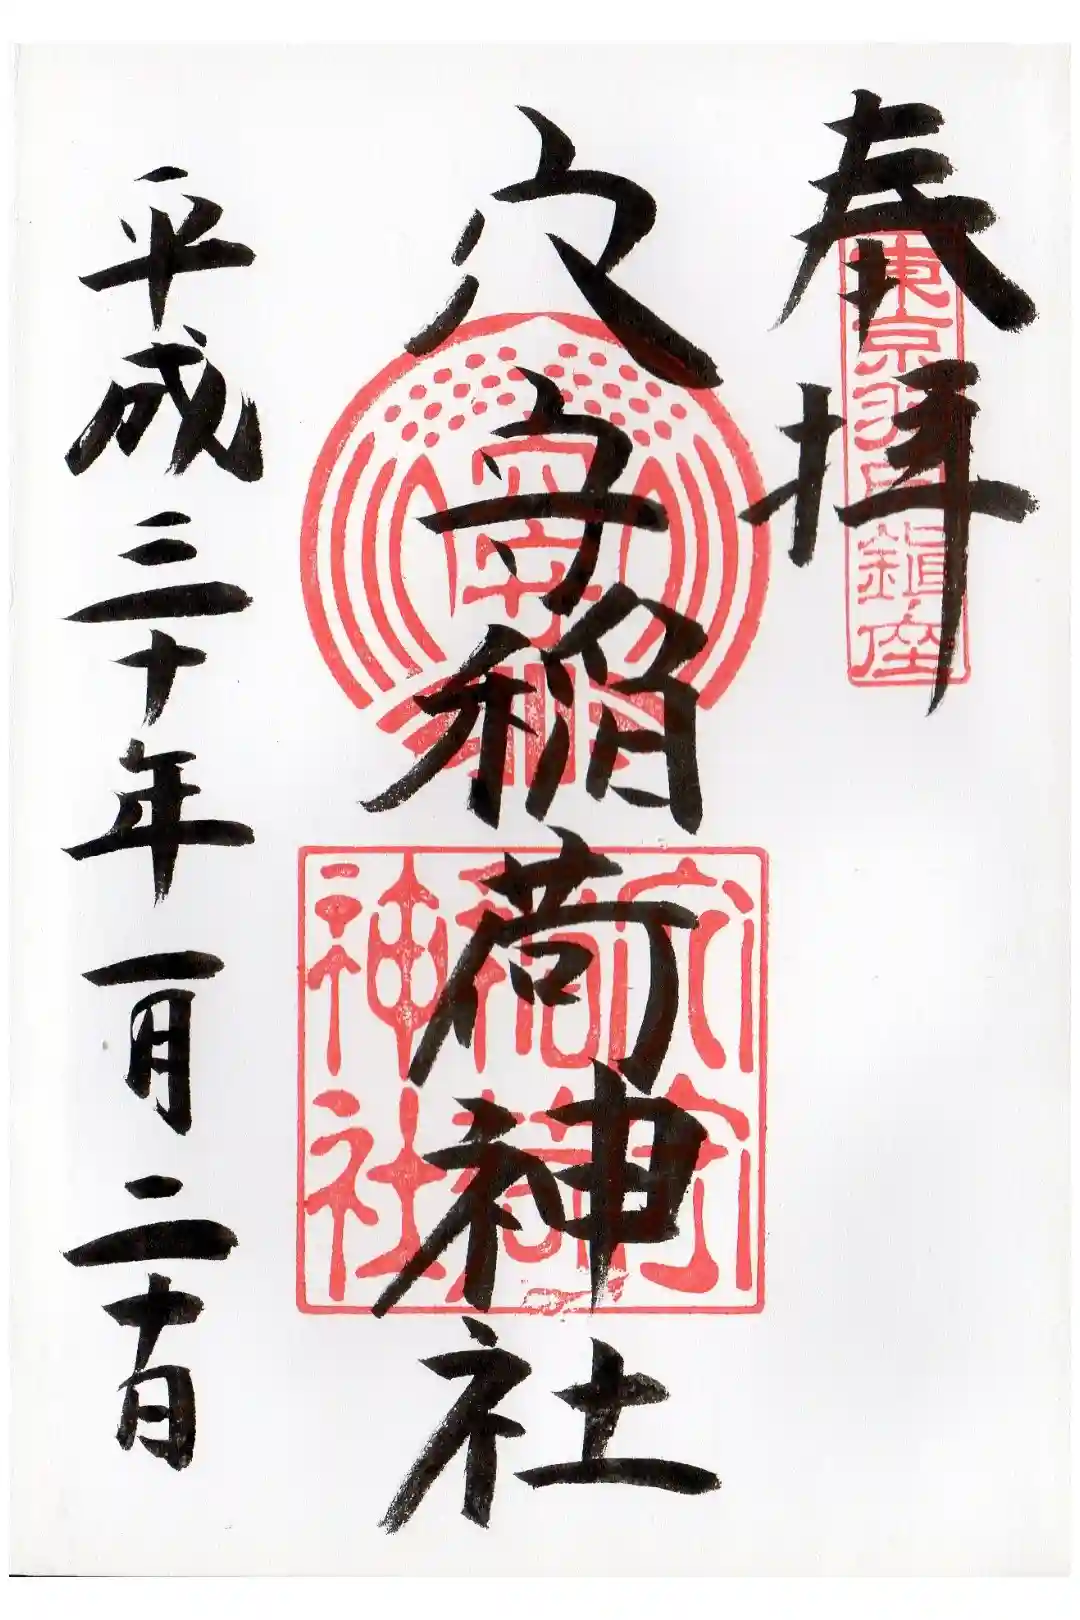 奉拝
東京羽田鎮座
穴守稲荷神社
穴守稲
穴守稲荷神社
平成三十年一月二十日